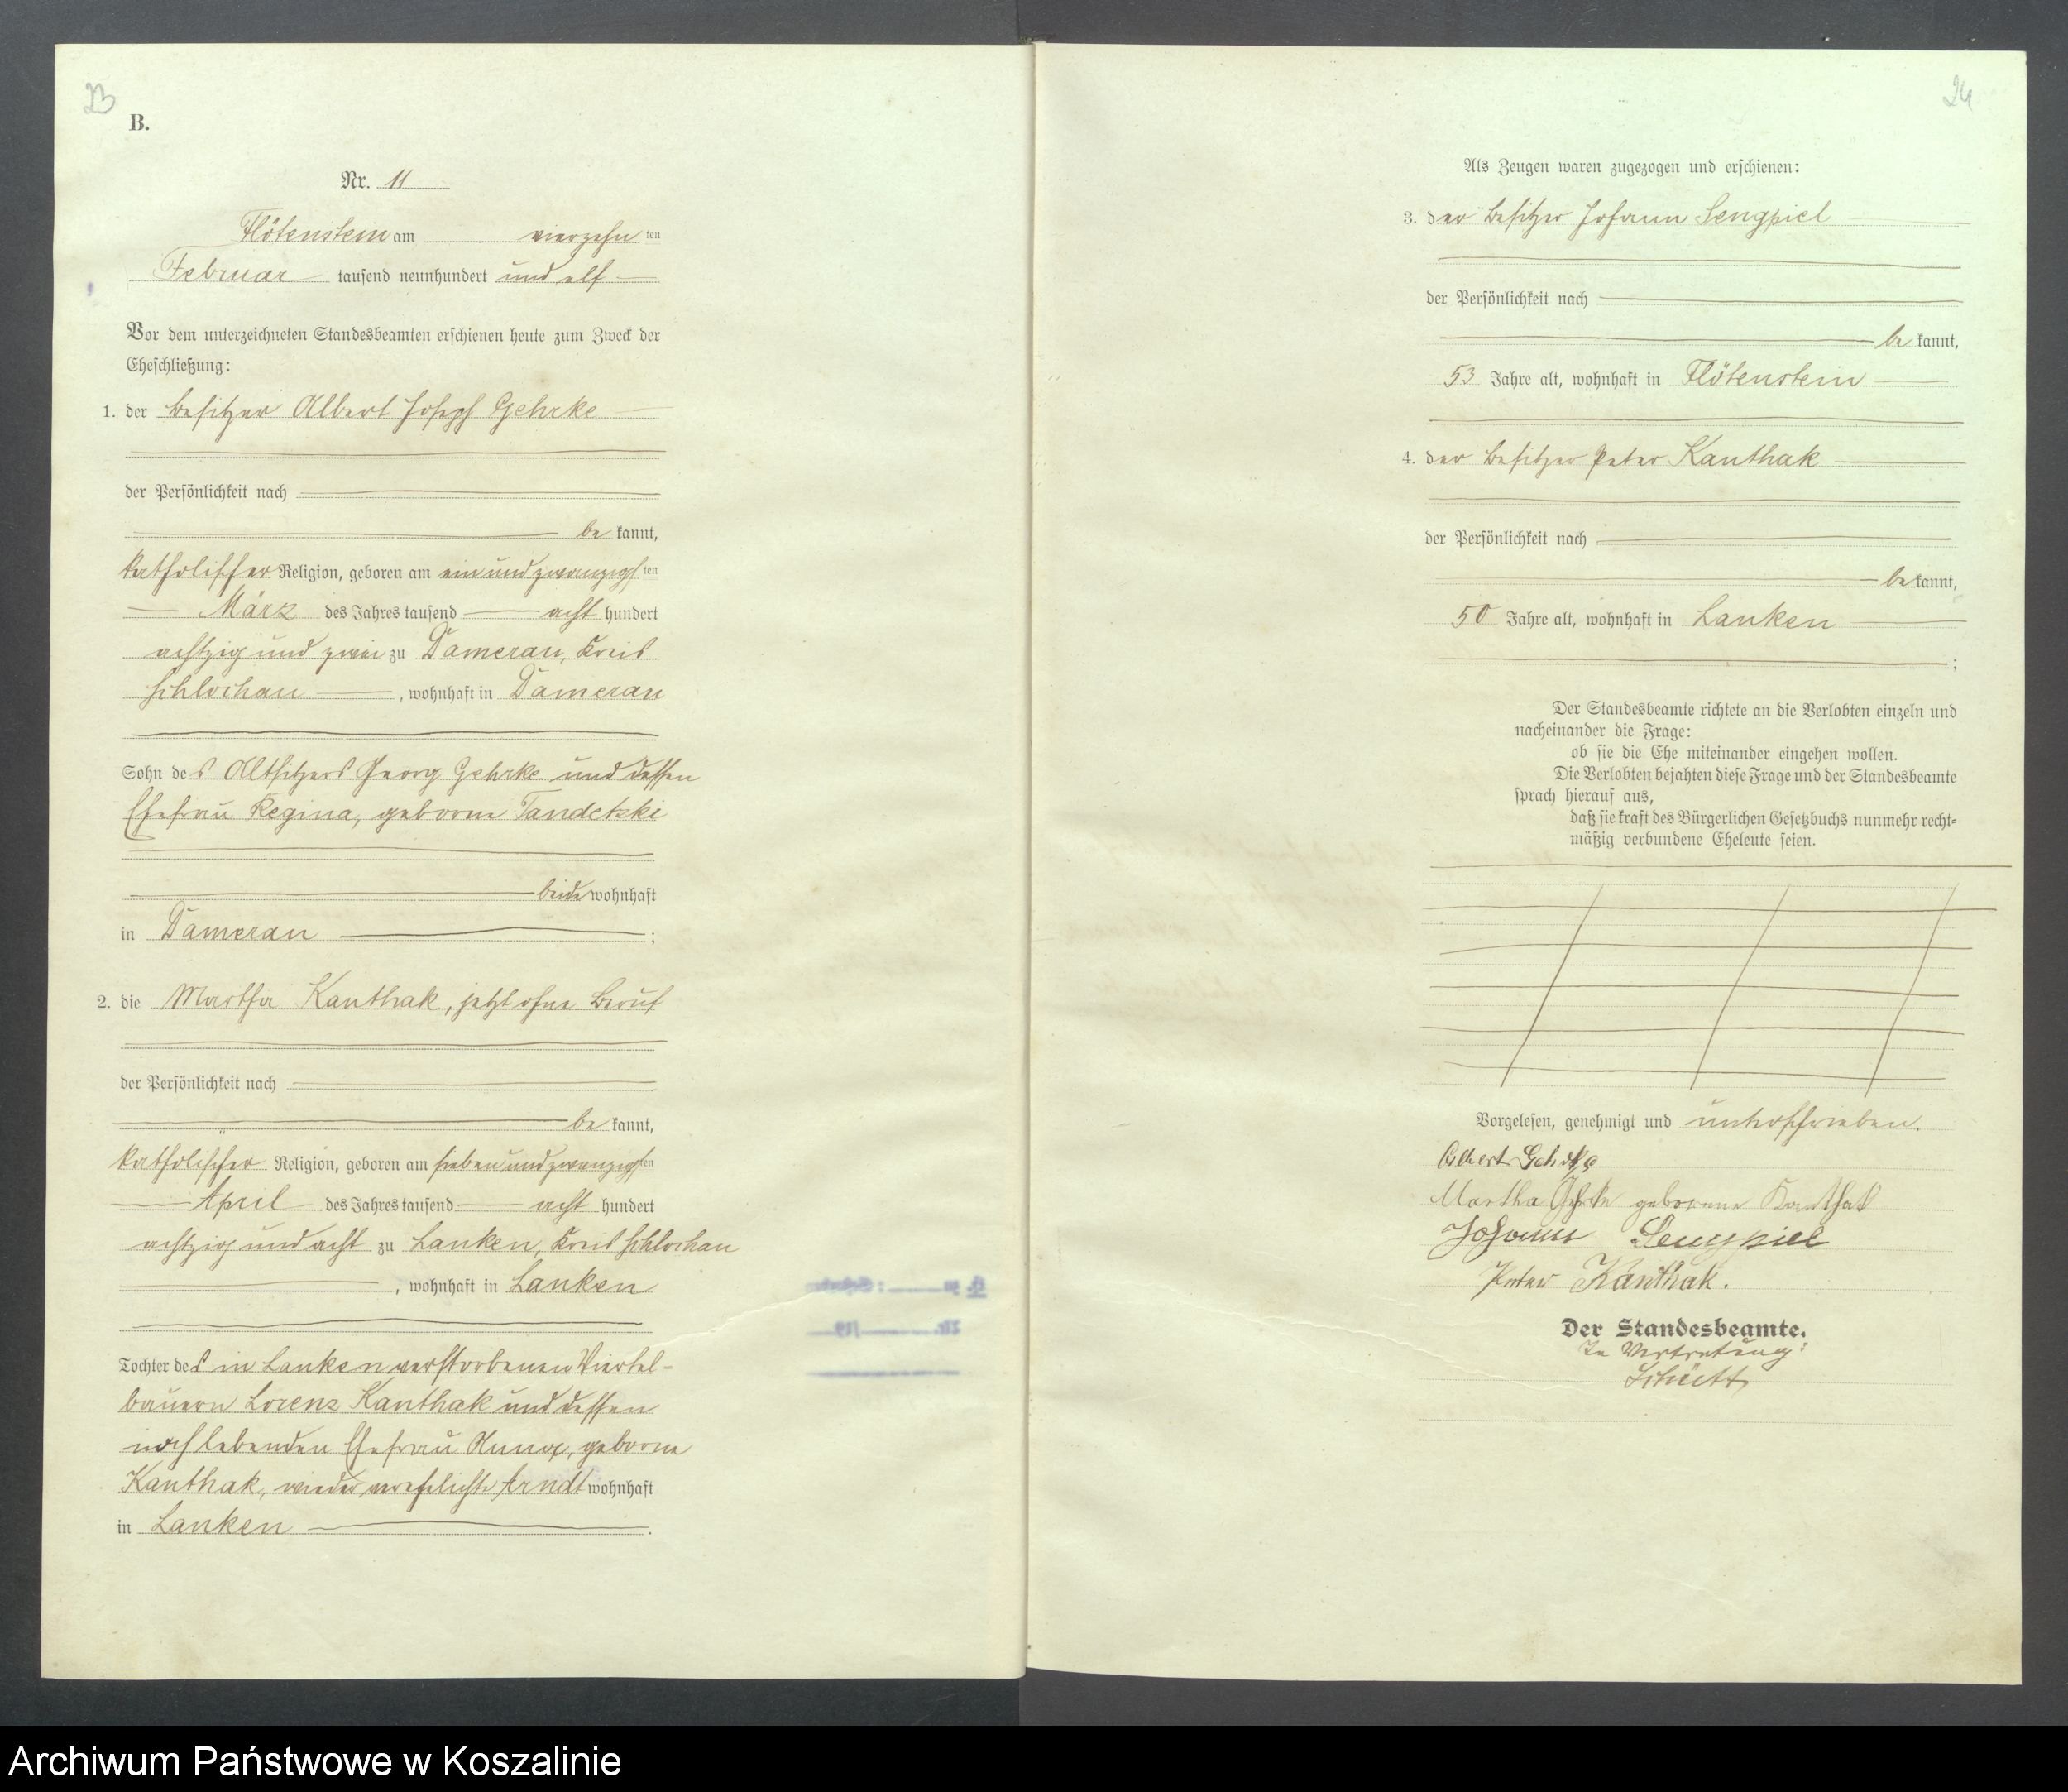 23
B.
Nr. 11
Flötenstein am vierzehn ten
Februar tausend neunhundert und elf
Vor dem unterzeichneten Standesbeamten erschienen heute zum Zweck der
Eheschließung:
1. der Besitzer Albert Joseph Gehrke
der Persönlichkeit nach
be kannt,
katholischer Religion, geboren am einundzwanzigsten
März des Jahres tausend acht hundert
achtzig und zwei zu Damerau, Kreis
Schlochau, wohnhaft in Damerau
Sohn des Altsitzers Georg Gehrke und dessen
Ehefrau Regina, geborne Tandetzki
beide wohnhaft
in Damerau ;
2. die Martha Kanthak, jetzt ohne Beruf
der Persönlichkeit nach
be kannt,
katholischer Religion, geboren am siebenundzwanzigsten
April des Jahres tausend acht hundert
achtzig und acht zu Lanken, Kreis Schlochau
, wohnhaft in Lanken
Tochter des in Lanken verstorbenen Viertel-
bauern Lorenz Kanthak und dessen
noch lebenden Ehefrau Anna, geborne
Kanthak, wieder verehelichte Arndt wohnhaft
in Lanken .
24
Als Zeugen waren zugezogen und erschienen:
3. der Besitzer Johann Sengpiel
der Persönlichkeit nach
be kannt,
53 Jahre alt, wohnhaft in Flötenstein
4. der Besitzer Peter Kanthak
der Persönlichkeit nach
be kannt,
50 Jahre alt, wohnhaft in Lanken
;
Der Standesbeamte richtete an die Verlobten einzeln und
nacheinander die Frage:
ob sie die Ehe miteinander eingehen wollen.
Die Verlobten bejahten diese Frage und der Standesbeamte
sprach hierauf aus,
daß sie kraft des Bürgerlichen Gesetzbuchs nunmehr recht-
mäßig verbundene Eheleute seien.
Vorgelesen, genehmigt und unterschrieben.
Albert Gehrke
Martha Gehrke geborene Kanthak
Johann Sengpiel
Peter Kanthak.
Der Standesbeamte.
In Vertretung:
Schütt
Archiwum Państwowe w Koszalinie